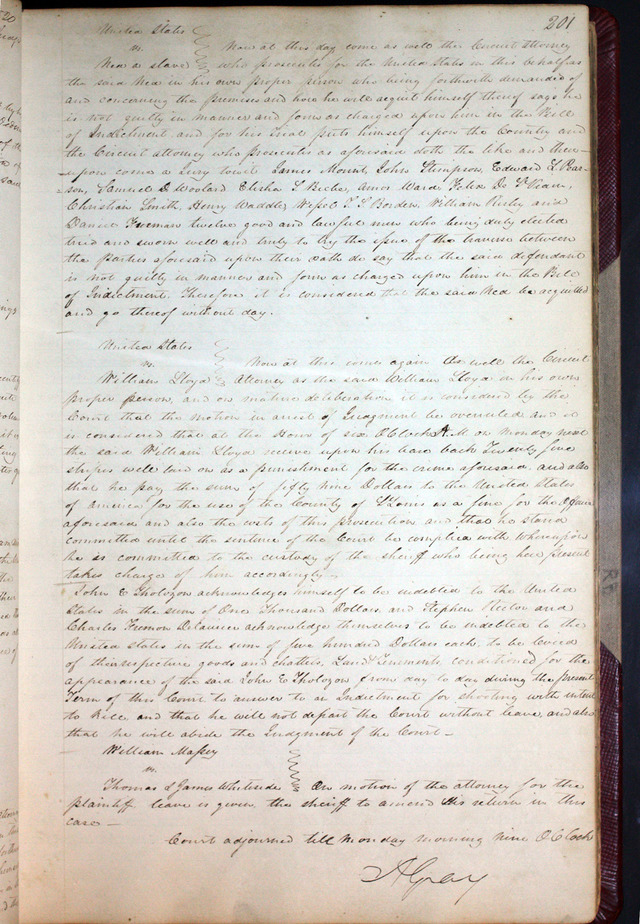 201
United States
vs. Now at this day come as well the Circuit Attorney
Ned a slave who prosecutes for the United States in this behalf as
the said Ned in his own proper person who being forthwith demanded of
and concerning the premises and how he will acquit himself thereof says he
is not guilty in manner and form as charged upon him in the Bill
of Indictment and for his trial puts himself upon the Country and
the Circuit attorney who prosecutes as aforesaid doth the like and there-
upon come a Jury towit James Mount, John Stempson, Edward L Pear-
son, Samuel D Woolard Elisha S Burke, Amos Ward Felix De
Christian Smith, Henry Waddle, Borden, William Risley and
Daniel Freeman twelve good and lawful men who being duly elected
tried and sworn well and truly to try the issue of the traverse between
the Parties aforesaid upon their oath do say that the said defendant
is not guilty in manner and form as charged upon him in the Bill
of Indictment. Therefore it is considered that the said Ned be acquitted
and go thereof without day.
United States
vs. Now at this comes again as well the Circuit
William Lloyd Attorney as the said William Lloyd in his own
proper person, and on mature deliberation it is considered by the
Court that the motion in arrest of Judgment be overruled and it
is considered that at the Hour of six O Clock A.M on Monday next
the said William Lloyd receive upon his bare back Twenty five
stripes well laid on as a punishment for the crime aforesaid, and also
that he pay the sum of fifty nine Dollars to the United States
of America for the use of the County of St Louis as a fine for the
aforesaid and also the costs of this prosecution and that he stand
committed until the sentence of the Court be complied with Whereupon
he is committed to the custody of the sheriff who being here present
takes charge of him accordingly.
John E Tholozon acknowledges himself to be indebted to the United
States in the sum of One Thousand Dollars, and Stephen Rector and
Charles Fremon Delauriere acknowledge themselves to be indebted to the
United States in the sum of five hundred Dollars each, to be levied
of their respective goods and chattels, Land Tenements, conditioned for the
appearance of the said John E Tholozon from day to day during the present
Term of this Court to answer to an Indictment for shooting with intent
to kill, and that he will not depart the Court without leave, and also
that he will abide the Judgment of the Court -
William Massey
vs.
Thomas & James Whiteside On motion of the attorney for the
plaintiff leave is given the sheriff to amend his return in this
case -
Court adjourned till Monday morning nine O Clock
A Gray